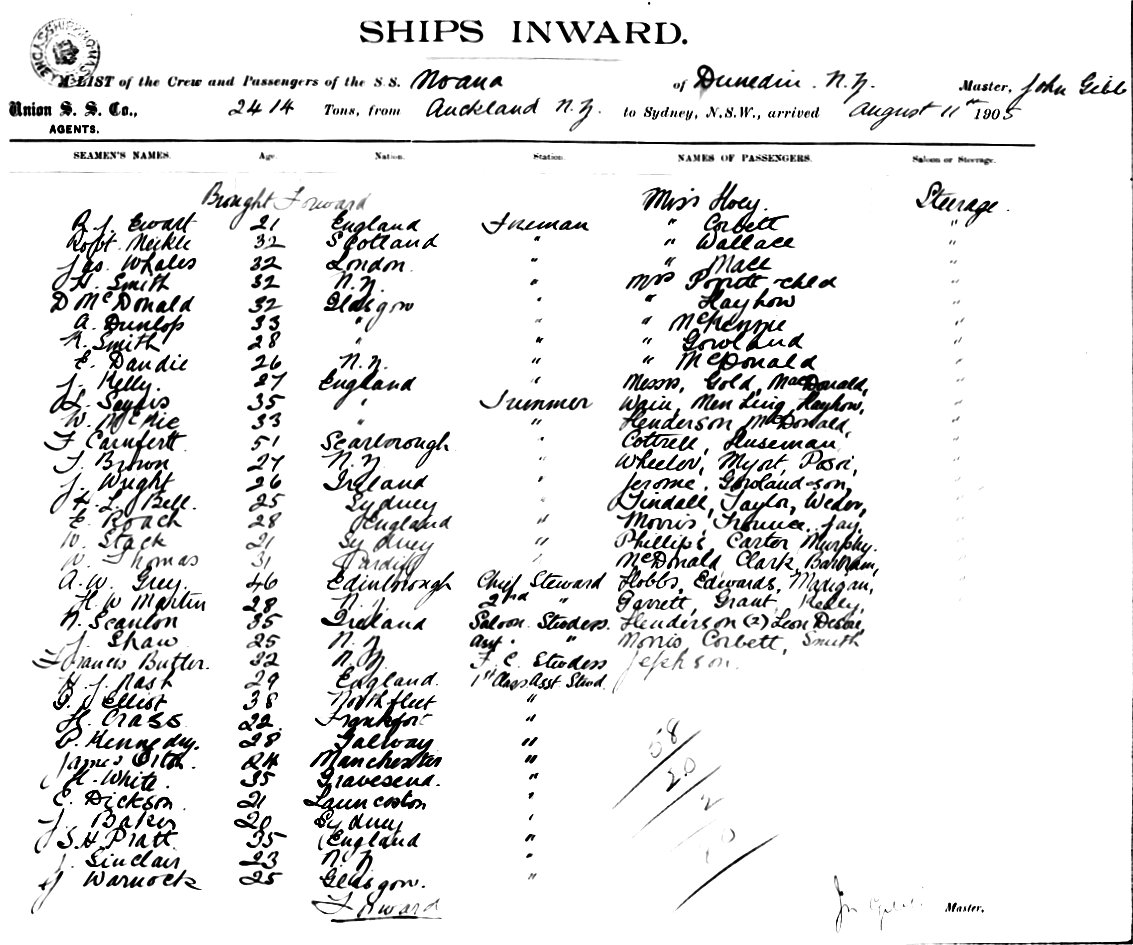 SHIPS INWARD.
A LIST of the Crew and Passengers of the S S. Moana of Dunedin. N.Z. Master, John Gibb
Union S. S. Co., 2414 Tons, from Auckland N.Z. to Sydney, N.S.W., arrived August 11th 1905
AGENTS.
SEAMEN'S NAMES. Age. Nation. Station. NAMES OF PASSENGERS. Saloon or Steerage.
Brought Forward Miss Hoey. Steerage.
Ewart 21 England Fireman " Corbett "
Robt. Meikle 32 Scotland " " Wallace "
Jas. Whales 32 London " " Mace "
H. Smith 32 N.Z. " Mrs Porritt child "
D McDonald 32 Glasgow " " Hayhow "
A. Dunlop 33 " " " McKenzie "
Smith 28 " " " Gowland "
E. Dandie 26 N.Z. " " McDonald "
J. Kelly. 27 England " Messrs, Gold, MacDonald, "
35 " Trimmer Wain, Men Ling Hayhow, "
W. McRie 33 " " Henderson McDonald, "
F. 51 Scarborough " Cottrell, Huseman "
J. Brown 27 N.Z. " Wheeler, Myort, "
J. Wright 26 Ireland " Jerome, Gowland son, "
H. L. Bell. 25 Sydney " Tindall, Taylor, Weder, "
E. Roach 28 England " Morris, Jay, "
W. Stack 21 Sydney " Phillips Carter Murphy. "
W. Thomas 31 Cardiff " McDonald, Clark, Bartram, "
A. W. Grey. 46 Edinborough Chief Steward Hobbs, Edwards, Madigan, "
H. W Martin 28 N.Z. 2nd " Garrett, Grant, Healy, "
N. Scanlon 35 Ireland Saloon Stwdess. Henderson (2) Leon
J. Shaw 25 N.Z. Asst " Morris, Corbett, Smith
Francis Butler. 32 N.Z. F. C. Stwdess Jephson.
H. J. Nash 29 England. 1st Class Asst Stwd.
Elliot 38 Northfleet "
H. Crass 22 Frankfort "
P. Kennedy. 28 Galway "
James 24 Manchester "
H. White. 35 Gravesend. "
E. Dickson 21 Launceston "
J. Baker 20 Sydney "
S. H. Pratt. 35 England "
J. Sinclair 23 N.Z. "
J Warnock 25 Glasgow. "
Forward
58
20
2
Jn Gibb Master.